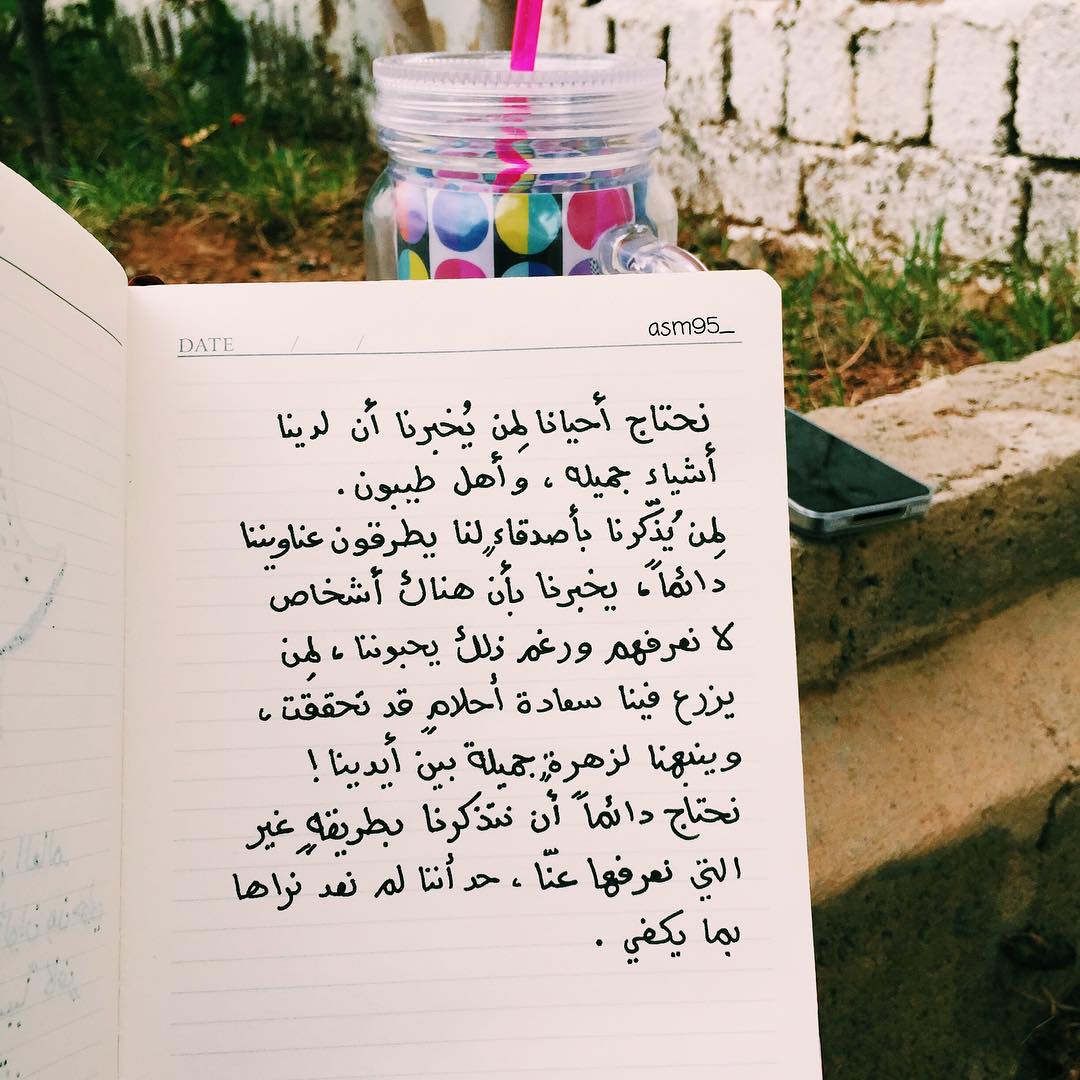 DATE / /
asm95_
نحتاج أحيانا لِمن يُخبرنا أن لدينا
أشياء جميله ، وأهل طيبون .
لِمن يُذّكرنا بأصدقاءٍ لنا يطرقون عناويننا
دائماً ، يخبرنا بأن هناك أشخاص
لا نعرفهم ورغم ذلك يحبوننا ، لِمن
يزرع فينا سعادة أحلامٍ قد تحققت ،
وينبهنا لزهرةٍ جميلة بين أيدينا !
نحتاج دائماً أن نتذكرنا بطريقهٍ غير
التي نعرفها عنّا ، حد أننا لم نعد نراها
بما يكفي .